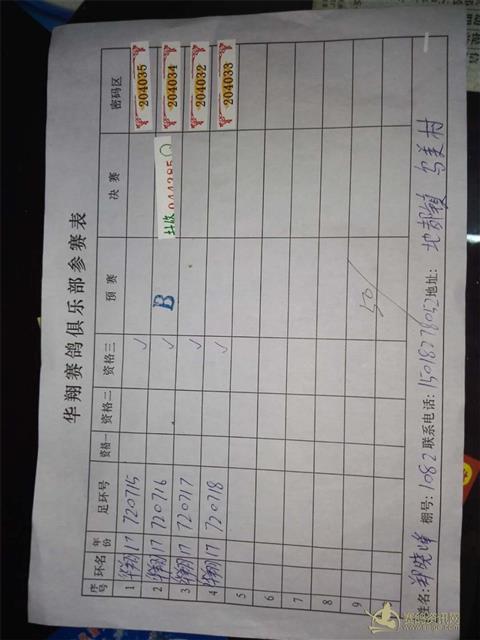 华翔赛鸽俱乐部参赛表
序号 环名 年份 足环号 资格一 资格二 资格三 预赛 决赛 密码区
1 华翔 17 720715 ✓ 204035
2 华翔 17 720716 ✓ B 204034
3 华翔 17 720717 ✓ 204032
4 华翔 17 720718 ✓ 204033
5
6
7
8
9 50
姓名: 郑晓峰 棚号: 1082 联系电话: 15018278052 地址: 地都镇 乌美村
赛鸽资讯网